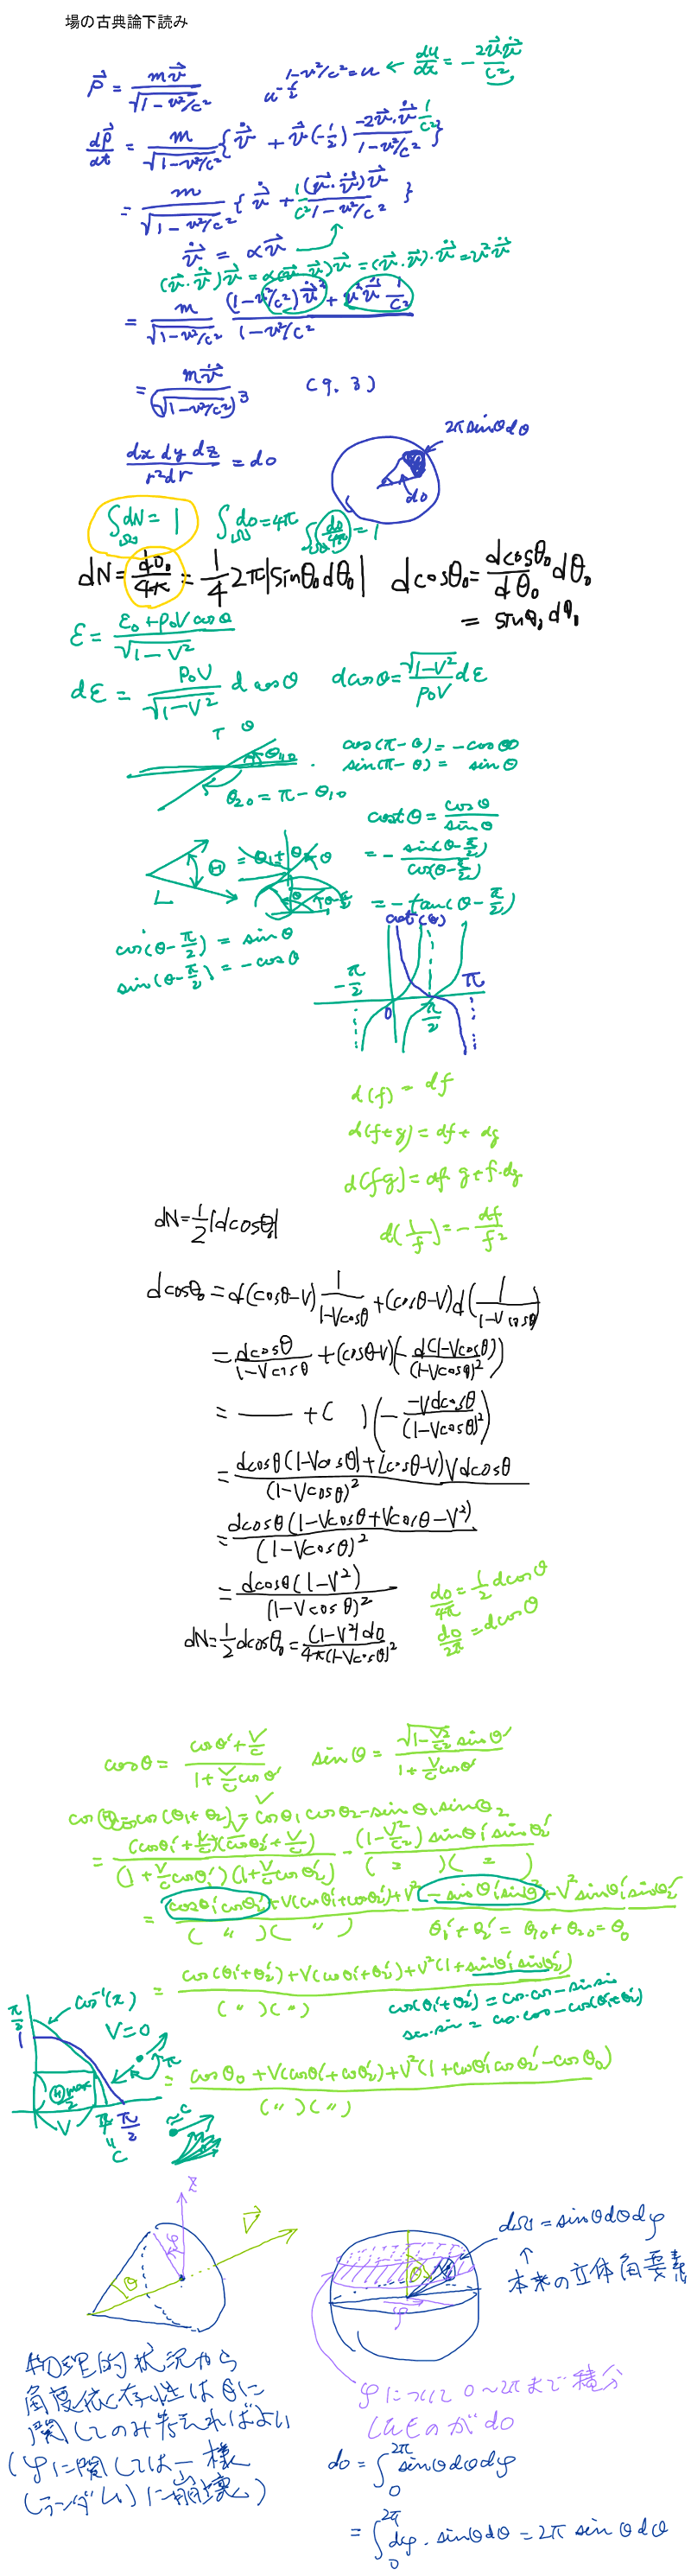 場の古典論下読み
p⃗ = mv⃗/√(1-v²/c²)   u^{-1/2}   1-v²/c² = u ← du/dt = -2v⃗·v̇⃗/c²
dp⃗/dt = m/√(1-v²/c²) { v̇⃗ + v⃗(-1/2) (-2v⃗·v̇⃗ 1/c²)/(1-v²/c²) }
= m/√(1-v²/c²) { v̇⃗ + 1/c² (v⃗·v̇⃗)v⃗/(1-v²/c²) }
v̇⃗ = αv⃗
(v⃗·v̇⃗)v⃗ = α(v⃗·v⃗)v⃗ = (v⃗·v⃗)·v̇⃗ = v²v̇⃗
= m/√(1-v²/c²) ((1-v²/c²)v̇⃗ + v²v̇⃗ 1/c²)/(1-v²/c²)
= mv̇⃗/(√(1-v²/c²))³   (9.3)
dx dy dz/r²dr = do   2π sinθdθ   do
∫_Ω dN = 1   ∫_Ω do = 4π   ∫_Ω do/4π = 1
dN = do₀/4π = 1/4 2π|sinθ₀dθ₀|   d cosθ₀ = dcosθ₀/dθ₀ dθ₀
= sinθ₀ dθ₀
ε = (ε₀ + p₀V cosθ)/√(1-V²)
dε = p₀V/√(1-V²) d cosθ   dcosθ = √(1-V²)/p₀V dε
cos(π-θ) = -cosθ
sin(π-θ) = sinθ
θ₂₀ = π - θ₁₀
cotθ = cosθ/sinθ
Θ = θ₁+θ₂
= - sin(θ-π/2)/cos(θ-π/2)
L
= -tan(θ-π/2)
cos(θ-π/2) = sinθ
sin(θ-π/2) = -cosθ
cot(θ)
-π/2   0   π/2   π
d(f) = df
d(f+g) = df + dg
d(fg) = df·g + f·dg
dN = 1/2|dcosθ₀|
d(1/f) = -df/f²
dcosθ₀ = d(cosθ-V) 1/(1-Vcosθ) + (cosθ-V)d(1/(1-Vcosθ))
= dcosθ/(1-Vcosθ) + (cosθ-V)(- d(1-Vcosθ)/(1-Vcosθ)²)
= — + ( )(- -Vdcosθ/(1-Vcosθ)²)
= (dcosθ(1-Vcosθ) + (cosθ-V)Vdcosθ)/(1-Vcosθ)²
= dcosθ(1-Vcosθ+Vcosθ-V²)/(1-Vcosθ)²
= dcosθ(1-V²)/(1-Vcosθ)²
do/4π = 1/2 dcosθ
do/2π = dcosθ
dN = 1/2 dcosθ₀ = (1-V²)do/4π(1-Vcosθ)²
cosθ = (cosθ' + V/c)/(1 + V/c cosθ')   sinθ = √(1-V²/c²) sinθ'/(1 + V/c cosθ')
cosΘ = cos(θ₁+θ₂) = cosθ₁cosθ₂ - sinθ₁sinθ₂
= (cosθ₁'+V/c)(cosθ₂'+V/c)/(1+V/c cosθ₁')(1+V/c cosθ₂') - (1-V²/c²) sinθ₁'sinθ₂'/( 〃 )( 〃 )
= (cosθ₁'cosθ₂' + V(cosθ₁'+cosθ₂') + V² - sinθ₁'sinθ₂' + V² sinθ₁'sinθ₂')/( 〃 )( 〃 )
θ₁'+θ₂' = θ₁₀+θ₂₀ = θ₀
= (cos(θ₁'+θ₂') + V(cosθ₁'+cosθ₂') + V²(1+sinθ₁'sinθ₂'))/( 〃 )( 〃 )
cos(θ₁'+θ₂') = cos·cos - sin·sin
sin·sin = cos·cos - cos(θ₁'+θ₂')
= (cosθ₀ + V(cosθ₁'+cosθ₂') + V²(1+cosθ₁'cosθ₂' - cosθ₀))/( 〃 )( 〃 )
cos⁻¹(x)
V=0
π/2   1   π
Θmax/2
V   π/2
C   ≈c
z   φ   V⃗   θ
dΩ = sinθdθdφ
↑
本来の立体角要素
物理的状況から
角度依存性はθに
関してのみ考えればよい
(φに関しては一様
(ランダム)に崩壊)
φについて0〜2πまで積分
したものがdo
do = ∫₀^{2π} sinθdθdφ
= ∫₀^{2π} dφ · sinθdθ = 2π sinθdθ